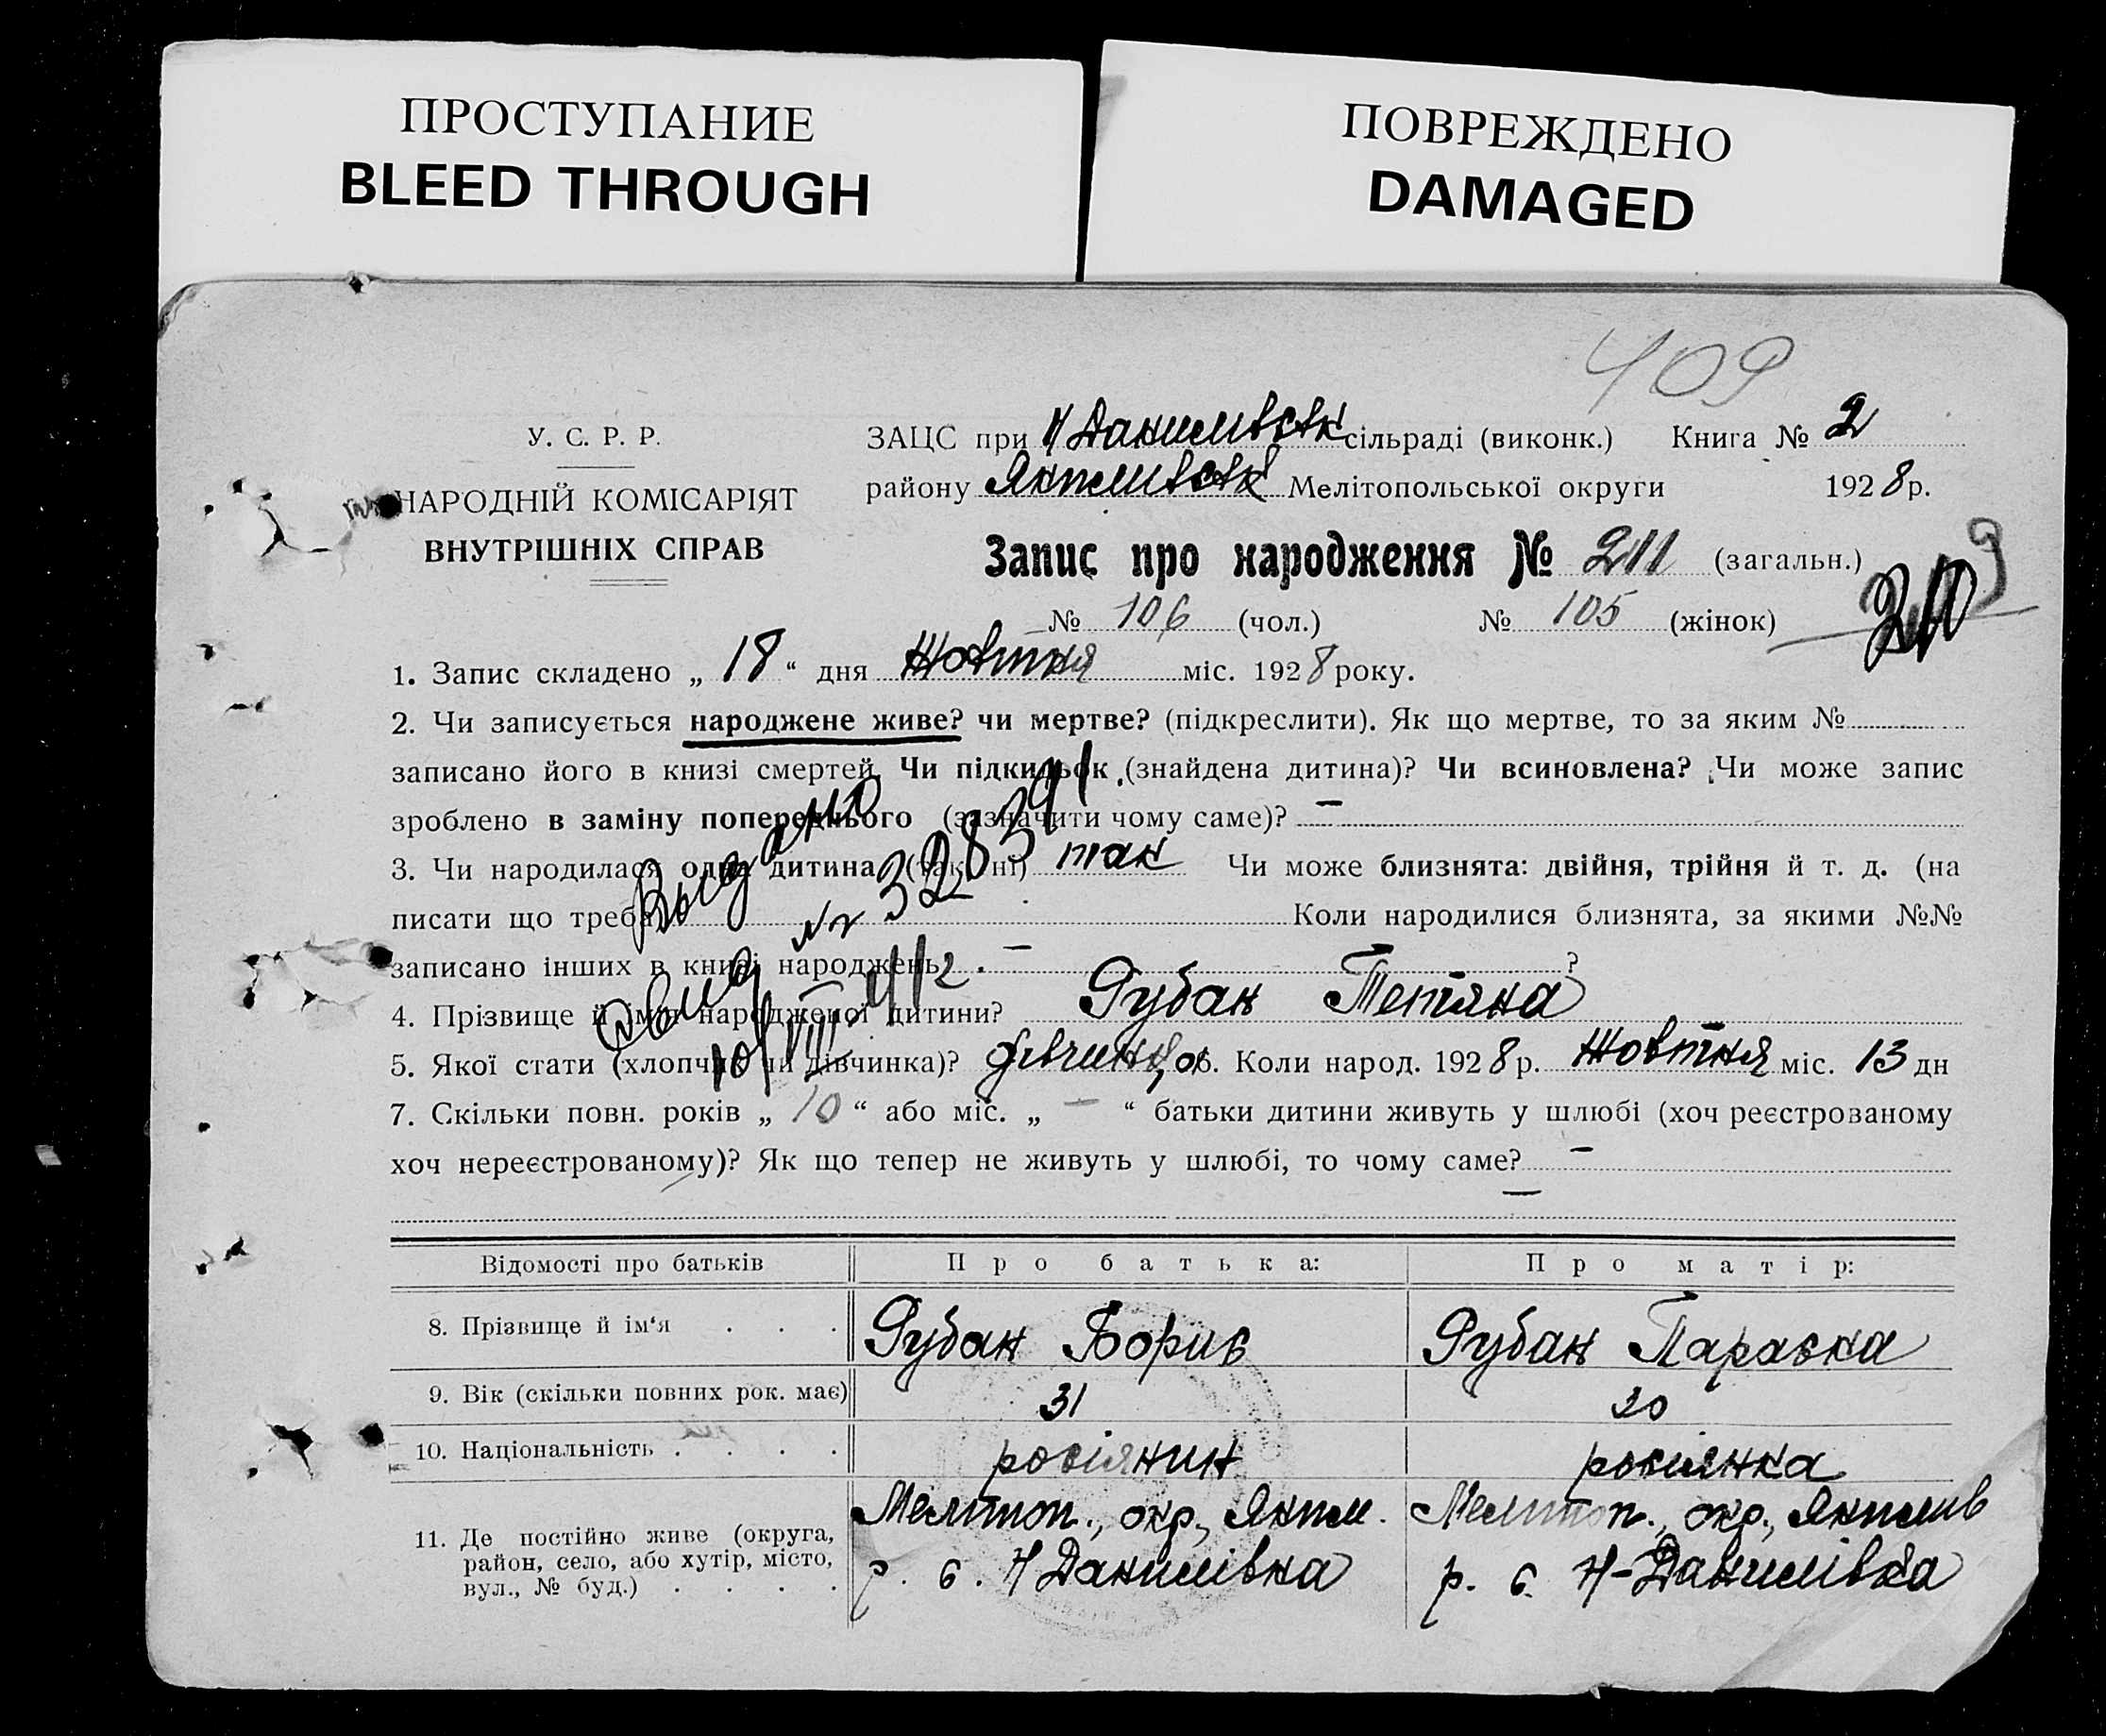 ПРОСТУПАНИЕ
BLEED THROUGH
ПОВРЕЖДЕНО
DAMAGED
409
У. С. Р. Р.
НАРОДНІЙ КОМІСАРІЯТ
ВНУТРІШНІХ СПРАВ
ЗАЦС при Н Данилівськ сільраді (виконк.) Книга № 2
району Якимівськ Мелітопольської округи 1928 р.
Запис про народження № 211 (загальн.)
№ 106 (чол.) № 105 (жінок)
1. Запис складено „ 18 “ дня Жовтня міс. 1928 року.
2. Чи записується народжене живе? чи мертве? (підкреслити). Як що мертве, то за яким №
записано його в книзі смертей. Чи підкидьок (знайдена дитина)? Чи всиновлена? Чи може запис
зроблено в заміну попереднього (зазначити чому саме)? —
3. Чи народилася одна дитина (так, ні) так Чи може близнята: двійня, трійня й т. д. (на
писати що треба) Коли народилися близнята, за якими №№
записано інших в книзі народжень —?
4. Прізвище й ім'я народженої дитини? Рубан Тетяна
5. Якої стати (хлопчик чи дівчинка)? дівчинка 6. Коли народ. 1928 р. Жовтня міс. 13 дн
7. Скільки повн. років „ 10 “ або міс. „ — “ батьки дитини живуть у шлюбі (хоч реєстрованому
хоч нереєстрованому)? Як що тепер не живуть у шлюбі, то чому саме? —
—
Выдано
Свид № 328391
10/VIII 41 г
Відомості про батьків Про батька: Про матір:
8. Прізвище й ім‘я . . . Рубан Борис Рубан Параска
9. Вік (скільки повних рок. має) 31 30
10. Національність . . . . росіянин росіянка
11. Де постійно живе (округа, район, село, або хутір, місто, вул., № буд.) . . . .
Мелітоп., окр., Яким.
р. с. Н Данилівка
Мелітоп., окр., Якимів
р. с. Н-Данилівка